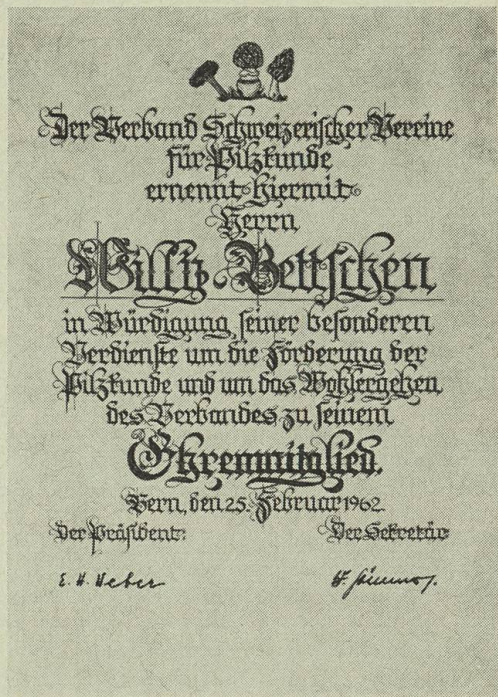 Der Verband Schweizerischer Vereine
für Pilzkunde
ernennt hiermit
Herrn
Willy Bettschen
in Würdigung seiner besonderen
Verdienste um die Förderung der
Pilzkunde und um das Wohlergehen
des Verbandes zu seinem
Ehrenmitglied.
Bern, den 25. Februar 1962
Der Präsident: Der Sekretär
E. H. Weber